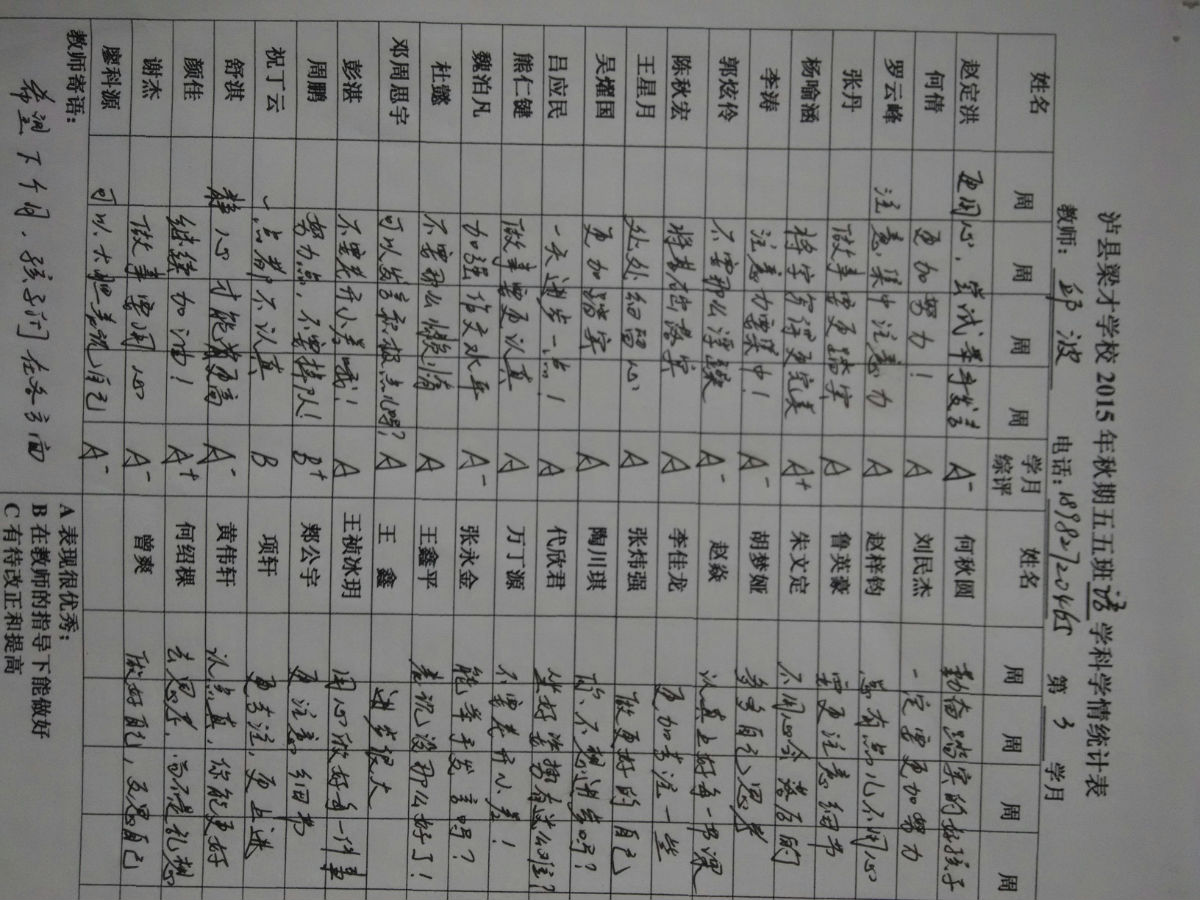 泸县梁才学校2015年秋期五五班语学科学情统计表
教师：邱波 电话：18982720465 第3学月
姓名 周 周 周 周 学月综评 姓名 周 周 周 周
赵定洪 更用心，尝试举手发言 A- 何秋圆 勤奋踏实的好孩子
何倩 更加努力！ A 刘民杰 一定要更加努力
罗云峰 注意集中注意力 A 赵梓钧 总有点儿不用心
张丹 做事要更踏实 A 鲁英豪 要更注意细节
杨喻涵 将字写得更完美 A+ 朱文定 不用心会落后的
李涛 注意力要集中！ A- 胡梦娅 多多自己思考
郭炫伶 不要那么浮躁 A- 赵焱 认真上好每一节课
陈秋宏 将基础落实 A 李佳龙 更加专注一些
王星月 处处细留心 A 张炜强 做更好的自己
吴燿国 更加踏实 A 陶川琪 你不想进步吗？
吕应民 一天进步一点！ A 代欣君 坐好姿势有这么难？
熊仁键 做事要更认真 A 万丁源 不要老开小差！
魏泊凡 加强作文水平 A- 张永金 能举手发言吗？
杜懿 不要那么懒惰 A 王鑫平 着说没那么好了！
邓周思宇 可以发言积极点儿吗？ A 王鑫 进步很大
彭湛 不要老开小差哦！ A 王祯冰玥 用心做好每一件事
周鹏 努力点，不要掉队！ B+ 郏公宇 更注意细节
祝丁云 一点都不认真 B 项轩 更专注，更上进
舒淇 静心才能有更高 A- 黄伟轩 认点真，你能更好
颜佳 继续加油！ A+ 何绍棵 去思考，而不是乱想
谢杰 做事要用心 A- 曾爽 做好自己，反思自己
廖科源 可以大胆表现自己 A-
教师寄语：
希望下个月，孩子们在各方面
A 表现很优秀；
B 在教师的指导下能做好
C 有待改正和提高